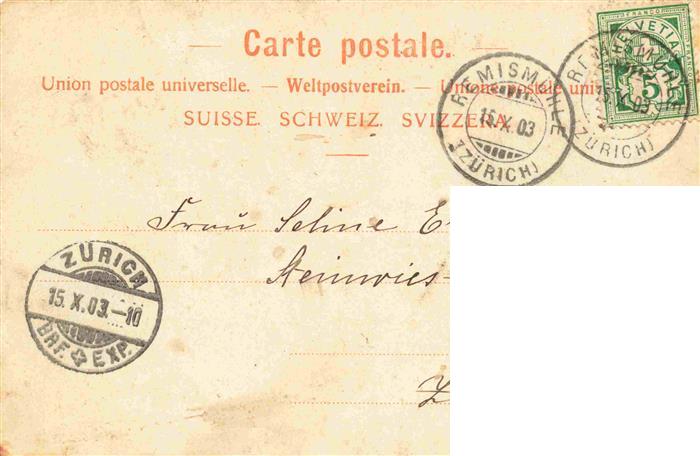 Carte postale.
Union postale universelle. — Weltpostverein. — Unione postale uni
SUISSE. SCHWEIZ. SVIZZERA.
RÄMISMÜHLE
15.X.03
(ZÜRICH)
HELVETIA
FRANCO
5
15.X.03
(ZÜRICH)
Frau Seline E
Steinwies-
Z
ZÜRICH
15.X.03.–10
BRF. EXP.